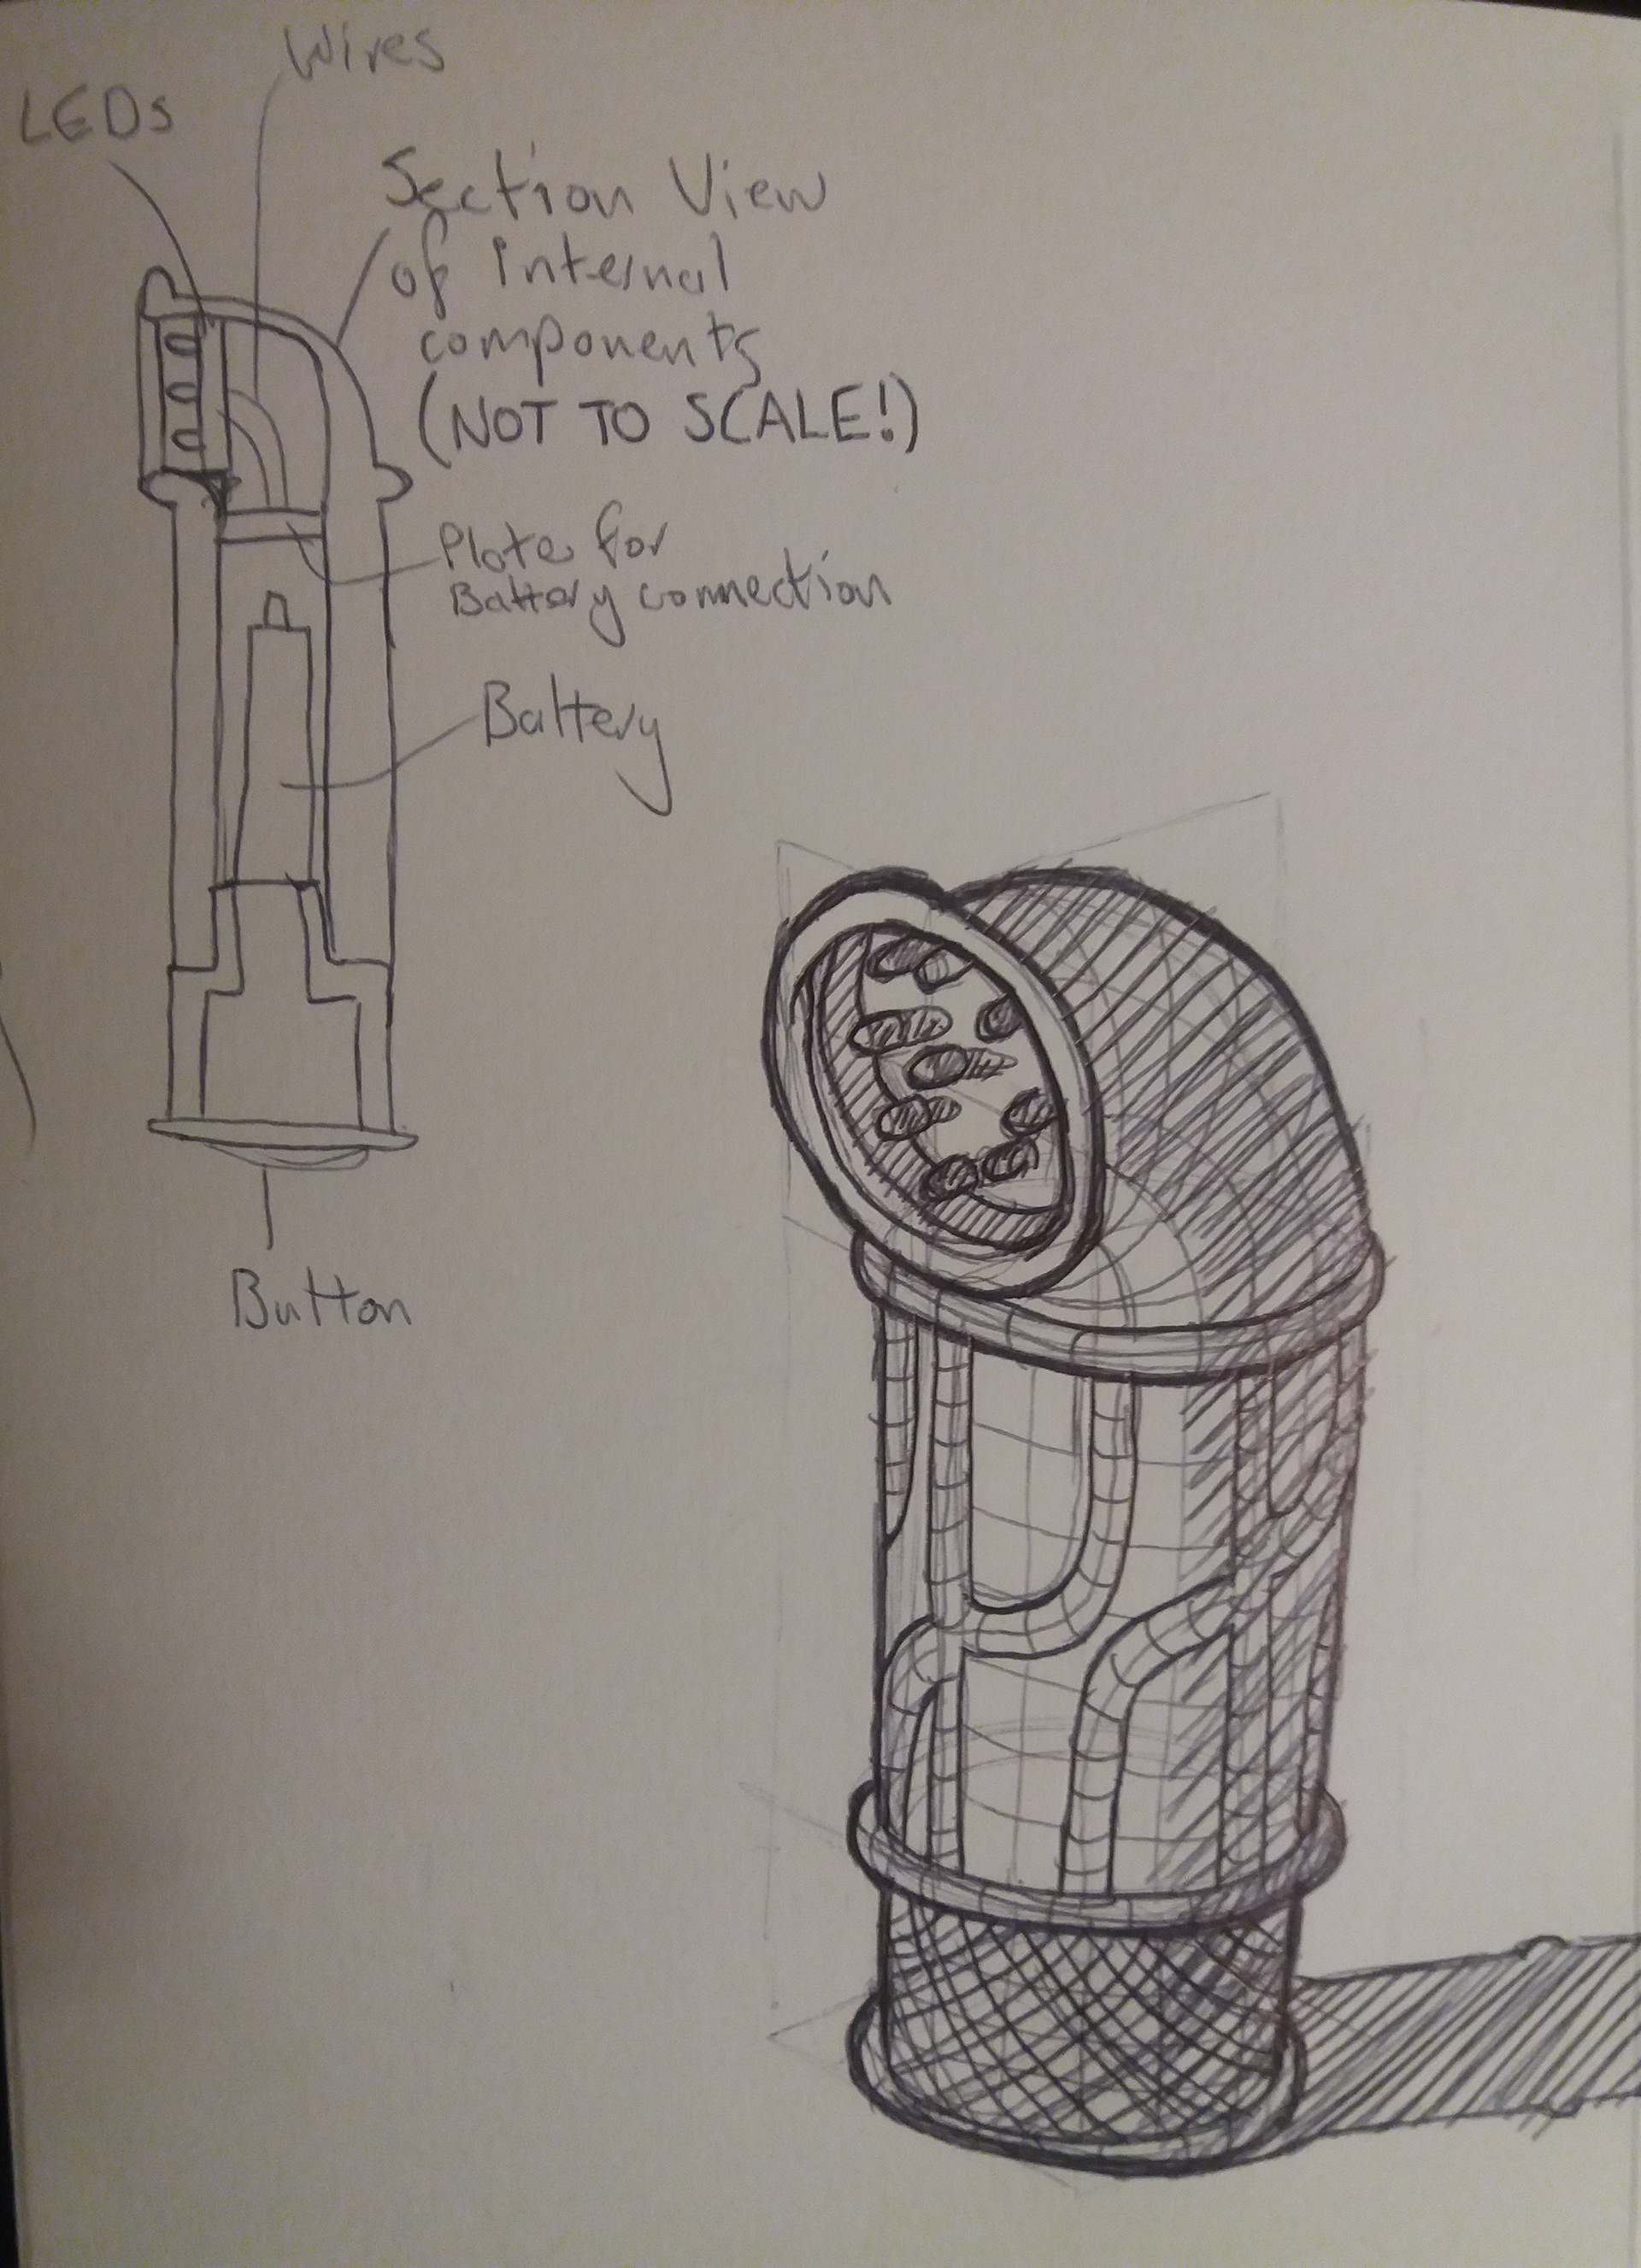 Wires
LEDs
Section View
of internal
components
(NOT TO SCALE!)
Plate for
Battery connection
Battery
Button